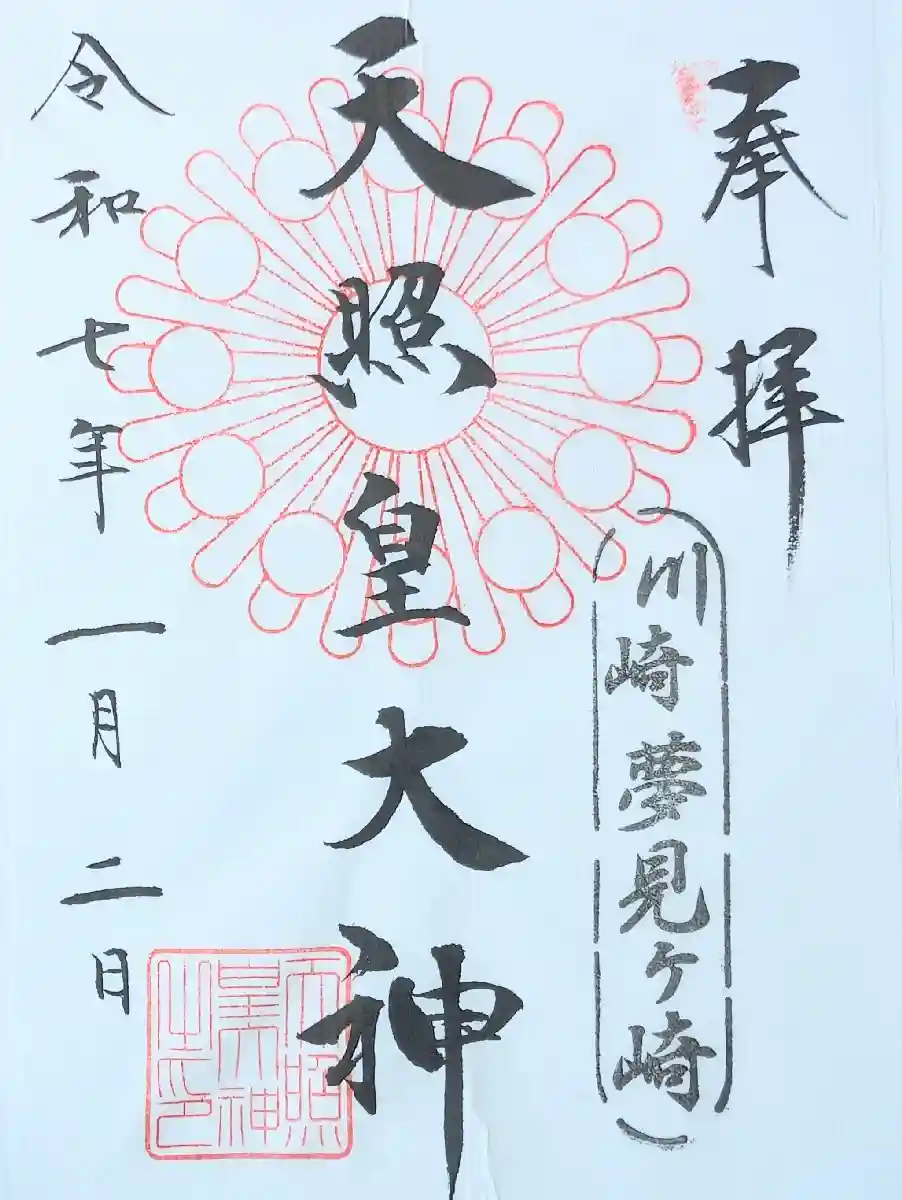 奉拝
川崎夢見ケ崎
天照皇大神
天照
皇大神
之印
令和七年一月二日